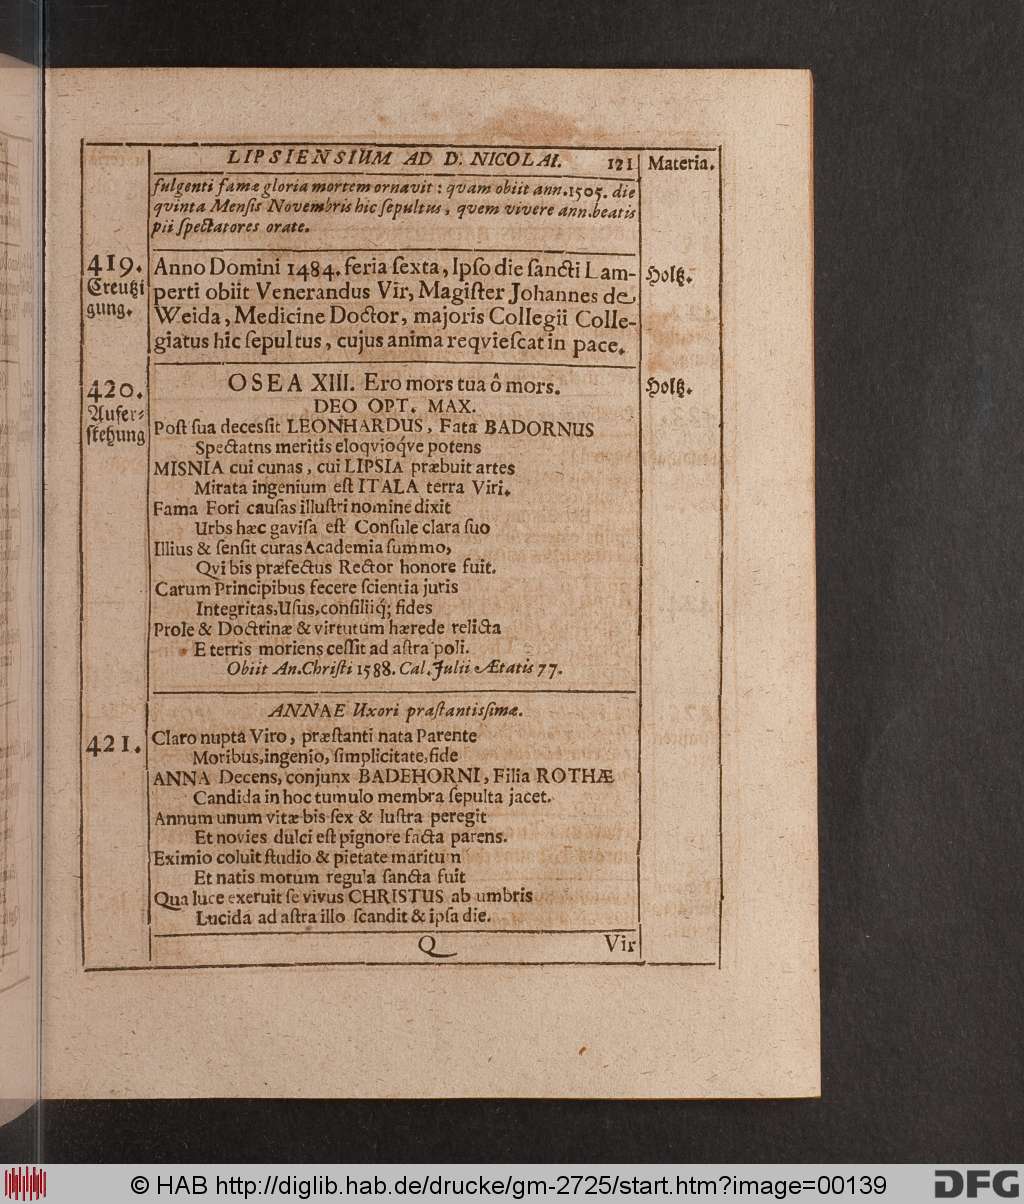 LIPSIENSIUM AD D. NICOLAI. 121 Materia.
fulgenti famæ gloria mortem ornavit : qvam obiit ann.1505. die
qvinta Mensis Novembris hic sepultus, qvem vivere ann.beatis
pii spectatores orate.
419. Anno Domini 1484. feria sexta, Ipso die sancti Lam- Holtz.
Creutzi perti obiit Venerandus Vir, Magister Johannes de
gung. Weida, Medicine Doctor, majoris Collegii Colle-
giatus hic sepultus, cujus anima reqviescat in pace.
420. OSEA XIII. Ero mors tua ô mors. Holtz.
Aufer= DEO OPT. MAX.
stehung Post sua decessit LEONHARDUS, Fata BADORNUS
Spectatns meritis eloqvioq́ve potens
MISNIA cui cunas, cui LIPSIA præbuit artes
Mirata ingenium est ITALA terra Viri.
Fama Fori causas illustri nomine dixit
Urbs hæc gavisa est Consule clara suo
Illius & sensit curas Academia summo,
Qvi bis præfectus Rector honore fuit.
Carum Principibus fecere scientia juris
Integritas,Usus,consiliiq́; fides
Prole & Doctrinæ & virtutum hærede relicta
E terris moriens cessit ad astra poli.
Obiit An.Christi 1588. Cal. Julii Ætatis 77.
ANNAE Uxori præstantissimæ.
421. Claro nupta Viro, præstanti nata Parente
Moribus,ingenio, simplicitate,fide
ANNA Decens, conjunx BADEHORNI, Filia ROTHÆ
Candida in hoc tumulo membra sepulta jacet.
Annum unum vitæ bis sex & lustra peregit
Et novies dulci est pignore facta parens.
Eximio coluit studio & pietate maritun
Et natis morum regula sancta fuit
Qua luce exeruit se vivus CHRISTUS ab umbris
Lucida ad astra illo scandit & ipsa die.
Q Vir
© HAB http://diglib.hab.de/drucke/gm-2725/start.htm?image=00139 DFG